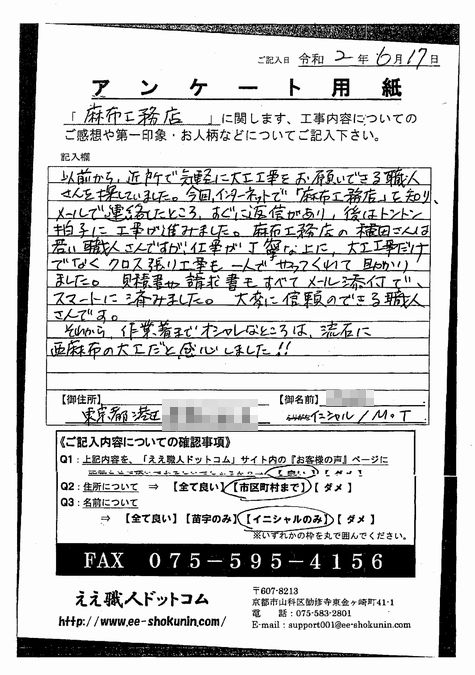 ご記入日 令和 2 年 6 月 17 日
アンケート用紙
「 麻布工務店 」に関します、工事内容についての
ご感想や第一印象・お人柄などについてご記入下さい。
記入欄
以前から、近所で気軽に大工工事をお願いできる職人
さんを探していました。今回、インターネットで「麻布工務店」を知り、
メールで連絡したところ、すぐに返信があり、後はトントン
拍子に工事が進みました。麻布工務店の 植田さんは
若い職人さんですが仕事が丁寧な上に、大工工事だけ
でなくクロス張り工事も一人でやってくれて助かり
ました。見積書や請求書もすべてメール添付で、
スマートに済みました。大変に信頼のできる職人
さんです。
それから、作業着までオシャレなところは、流石に
西麻布の大工だと感心しました!!
【御住所】
【御名前】
東京都港区
イニシャル / M.T
《ご記入内容についての確認事項》
Q1：上記内容を、「ええ職人ドットコム」サイト内の『お客様の声』ページに
【 良い 】 【 ダメ 】
Q2：住所について ⇒ 【全て良い】【市区町村まで】【 ダメ 】
Q3：名前について
⇒ 【全て良い】【苗字のみ】【イニシャルのみ】【 ダメ 】
※いずれかの枠を丸で囲んでください。
FAX 075-595-4156
ええ職人ドットコム
http://www.ee-shokunin.com/
〒607-8213
京都市山科区勧修寺東金ヶ崎町41-1
電 話：075-583-2801
E-mail：support001@ee-shokunin.com